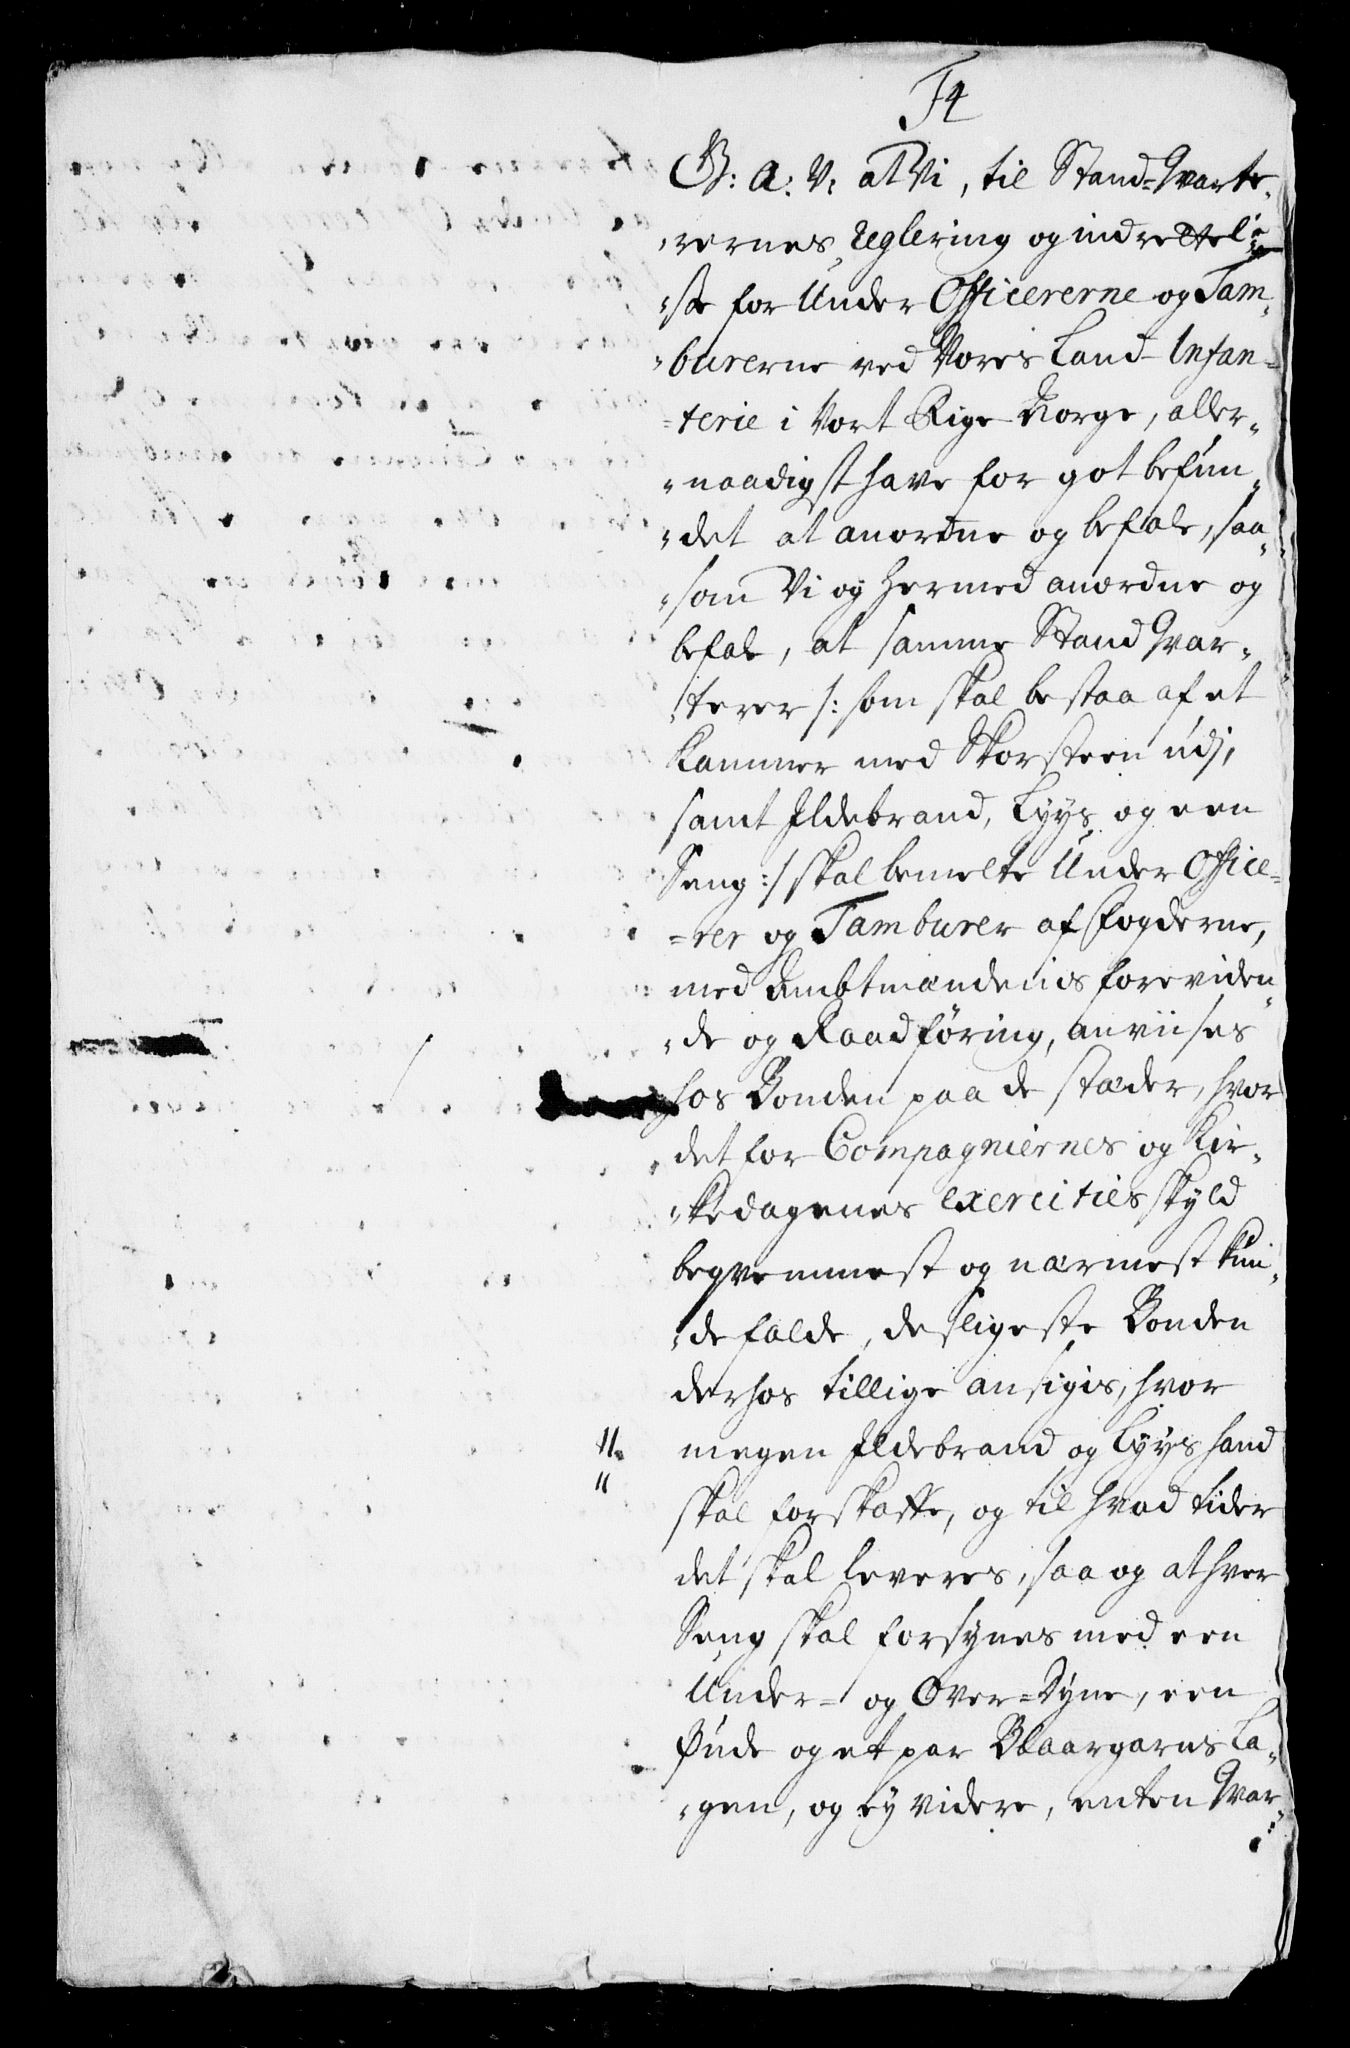 F4
G: A: V: at Vi, til Stand-Qvarte-
rernes reglering og indrettel-
se for Under Officererne og Tam-
burerne ved Vores Land-Infan-
terie i Vort Rige Norge, aller-
naadigst have for got befun-
det at anordne og befale, saa-
som Vi og hermed anordne og
befale, at samme Stand Qvar-
terer /: som skal bestaa af et
Kammer med Skorsteen udj,
samt Ildebrand, Lyys og een
Seng :/ skal bemelte Under Office-
rer og Tamburer af Fogderne,
med Ambtmændenis foreviden-
de og Raadföring, anviises
hos Bonden paa de stæder, hvor
det for Compagniernes og Kir-
kedagenes exercities skyld
beqvemmest og nærmest kun-
de falde, desligeste Bonden
derhos tillige ansigis, hvor
megen Ildebrand og Lyys hand
skal forskaffe, og til hvad tider
det skal leveres, saa og at hver
Seng skal forsynes med een
Under- og Over-Dyne, een
Pude og et par Blaargarns La-
gen, og ey videre, enten Qvar-